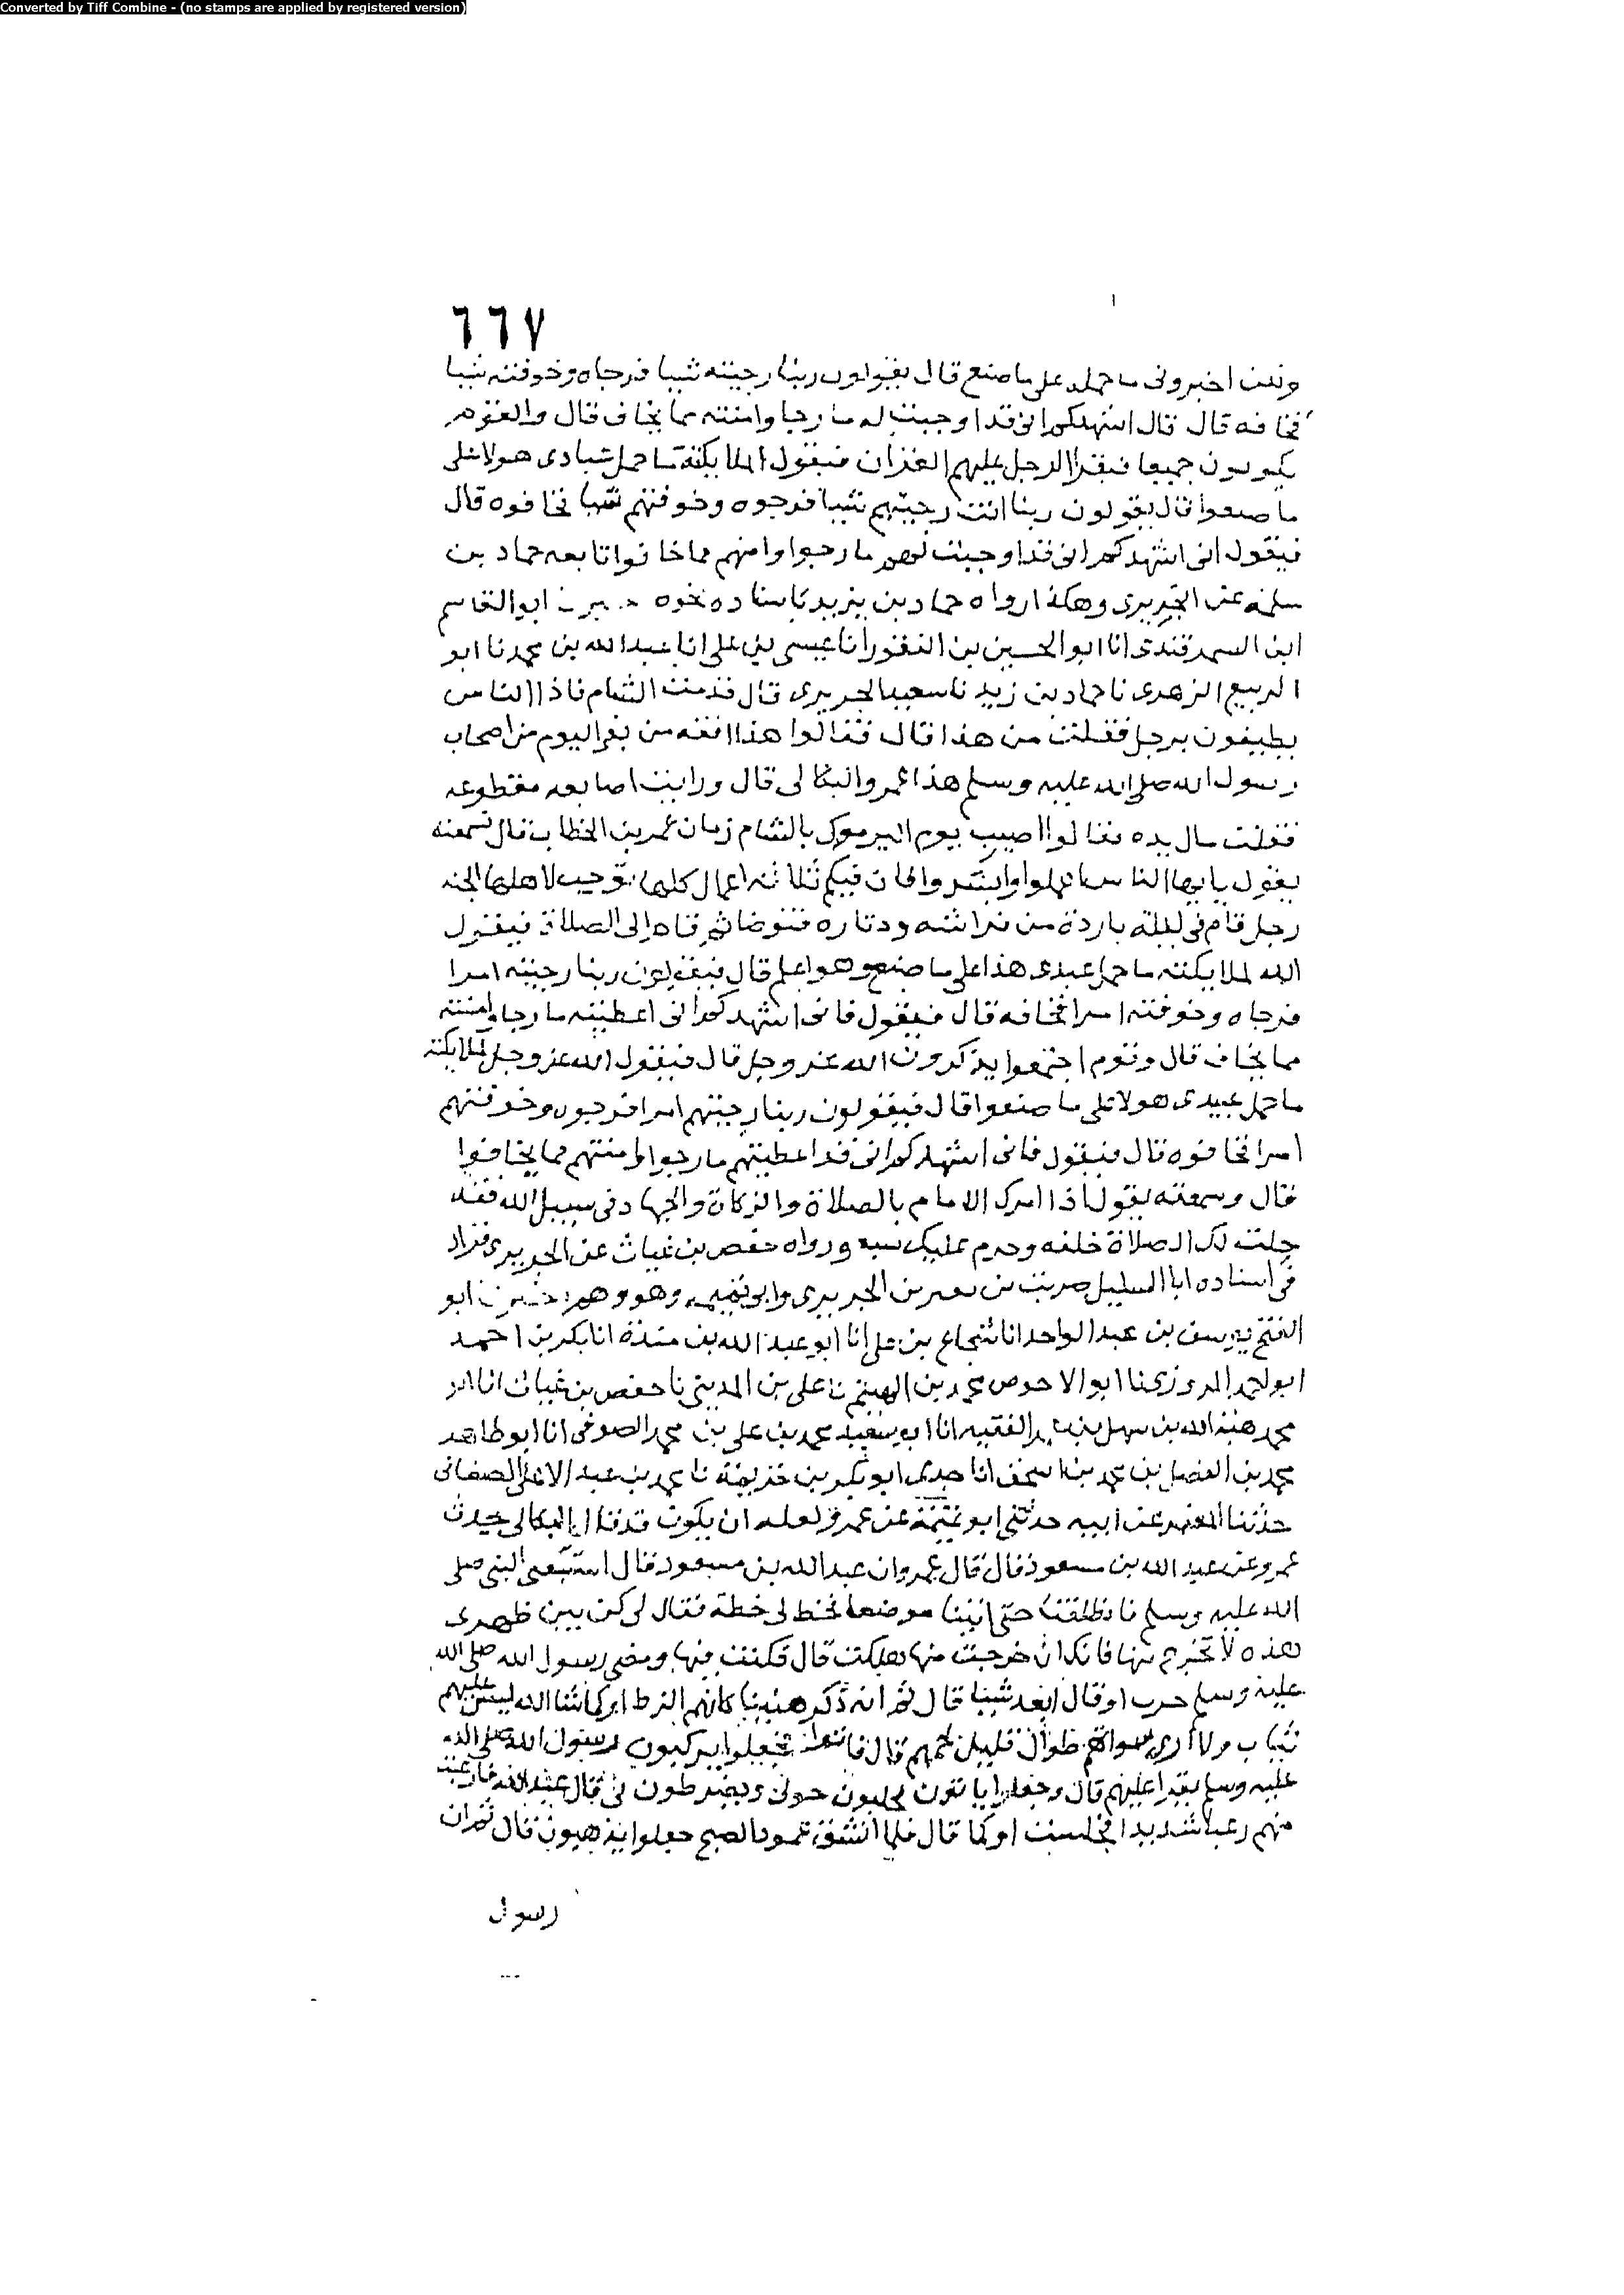 Converted by Tiff Combine - (no stamps are applied by registered version)
٦٦٧
ولكن اخبروني ما حمله على ما صنع قال يقولون ربنا رجيته شيا فرجاه وخوفته شيا
فخافه قال قال اشهدكم اني قد اوجبت له ما رجا وامنته مما يخاف قال والقوم
يكونون جميعا فيقرا الرجل عليهم القران فيقول الملايكته ما حمل عبادي هولا على
ما صنعوا قال يقولون ربنا انت رجيتهم شيا فرجوه وخوفتهم شيا فخافوه قال
فيقول اني اشهدكم اني قد اوجبت لهم ما رجوا وامنهم مما خافوا تابعه حماد بن
سلمة عن الجريري وهكذا رواه حماد بن يزيد باسناده نحوه ابو القاسم
ابن السمرقندي انا ابو الحسين بن النقور انا عيسى بن علي انا عبد الله بن محمد نا ابو
الربيع الزهري نا حماد بن زيد نا سعيد الجريري قال قدمت الشام فاذا الناس
يطيفون برجل فقلت من هذا قال فقالوا هذا افقه من بقي اليوم من اصحاب
رسول الله صلى الله عليه وسلم هذا عمرو البكالي قال ورايت اصابعه مقطوعه
فقلت سال يده فقالوا اصيب يوم اليرموك بالشام زمان عمر بن الخطاب قال فسمعته
يقول يا ايها الناس اعملوا وابشروا فان فيكم ثلاثه اعمال كلها توجب لاهلها الجنه
رجل قام في ليلة باردة من فراشه ودثاره فتوضا ثم قام الى الصلاة فيقول
الله لملايكته ما حمل عبدي هذا على ما صنع وهو اعلم قال فيقولون ربنا رجيته امرا
فرجاه وخوفته امرا فخافه قال فيقول فاني اشهدكم اني اعطيته ما رجا وامنته
مما يخاف قال وقوم اجتمعوا يذكرون الله عز وجل قال فيقول الله عز وجل لملايكته
ما حمل عبيدي هولا على ما صنعوا قال فيقولون ربنا رجيتهم امرا فرجوه وخوفتهم
امرا فخافوه قال فيقول فاني اشهدكم اني قد اعطيتهم ما رجوا وامنتهم مما يخافوا
قال وسمعته يقول اذا امرك الامام بالصلاة والزكاة والجهاد في سبيل الله فقد
حلت لك الصلاة خلفه وحرم عليك سبه ورواه حفص بن غياث عن الجريري فزاد
في اسناده ابا السليل ضريب بن بين الجريري وابو تميمه وهو وهم ابو
الفتح يوسف بن عبد الواحد انا شجاع بن علي انا ابو عبد الله بن مندة انا بكر بن احمد
ابو احمد المروزي نا ابو الاحوص محمد بن الهيثم نا علي بن المديني نا حفص بن غياث انا ابو
محمد هبة الله بن سهل بن عمر الفقيه انا ابو سعيد محمد بن علي بن محمد الصوفي انا ابو طاهر
محمد بن الفضل بن محمد بن اسحق انا جدي ابو بكر بن خزيمة نا محمد بن عبد الاعلى الصنعاني
حدثنا المعتمر عن ابيه حدثني ابو تميمة عن عمرو لعله ان يكون قد قال البكالي يحدث
عمرو عن عبد الله بن مسعود قال قال عمرو ان عبد الله بن مسعود قال استتبعني النبي صلى
الله عليه وسلم فانطلقنا حتى اتينا موضعا فخط لي خطة فقال لي كن بين ظهري
هذه لا تخرج منها فانك ان خرجت منها هلكت قال فكنت فيها ومضى رسول الله صلى الله
عليه وسلم او قال ابعد شيئا قال ثم انه ذكر هنينا كانهم الزط او كما شا الله ليس عليهم
ثياب ولا ارى سواتهم طوال قليل لحمهم قال فاتوا فجعلوا يركبون رسول الله صلى الله
عليه وسلم يقرا عليهم قال وجعلوا ياتون حولي ويعترضون لي قال عبد الله فارعبت
منهم رعبا شديدا فجلست او كما قال فلما انشق عمود الصبح جعلوا يذهبون قال ثم ان
رسول